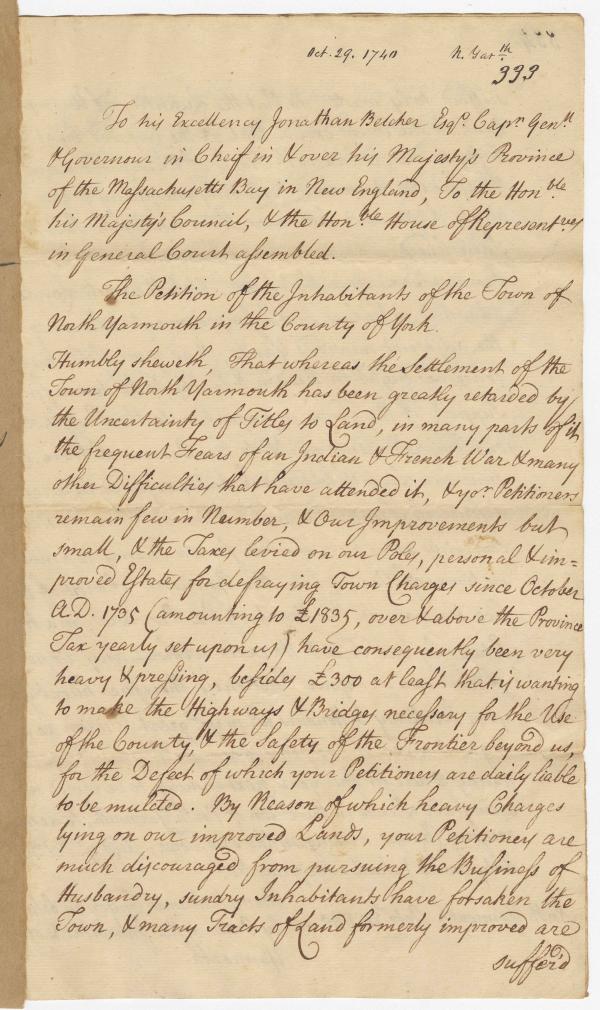 Oct. 29. 1740 N. Yarth
333
To his Excellency Jonathan Belcher Esqr. Capn. Genll
& Governour in Cheif in & over his Majesty's Province
of the Massachusetts Bay in New England, To the Honble
his Majesty's Council, & the Honble House of Representves
in General Court assembled.
The Petition of the Inhabitants of the Town of
North Yarmouth in the County of York.
Humbly sheweth, That whereas the Settlement of the
Town of North Yarmouth has been greatly retarded by
the Uncertainty of Titles to Land, in many parts of it
the frequent Fears of an Indian & French War & many
other Difficulties that have attended it, & yor. Petitioners
remain few in Number, & Our Improvements but
small, & the Taxes levied on our Poles, personal & im=
proved Estates for defraying Town Charges since October
A.D. 1735 (amounting to £1835, over & above the Province
Tax yearly set upon us) have consequently been very
heavy & pressing, besides £300 at least that is wanting
to make the Highways & Bridges necessary for the Use
of the County, & the Safety of the Frontier beyond us,
for the Defect of which your Petitioners are daily liable
to be mulcted. By Reason of which heavy Charges
lying on our improved Lands, your Petitioners are
much discouraged from pursuing the Business of
Husbandry, sundry Inhabitants have forsaken the
Town, & many Tracts of Land formerly improved are
suffer'd